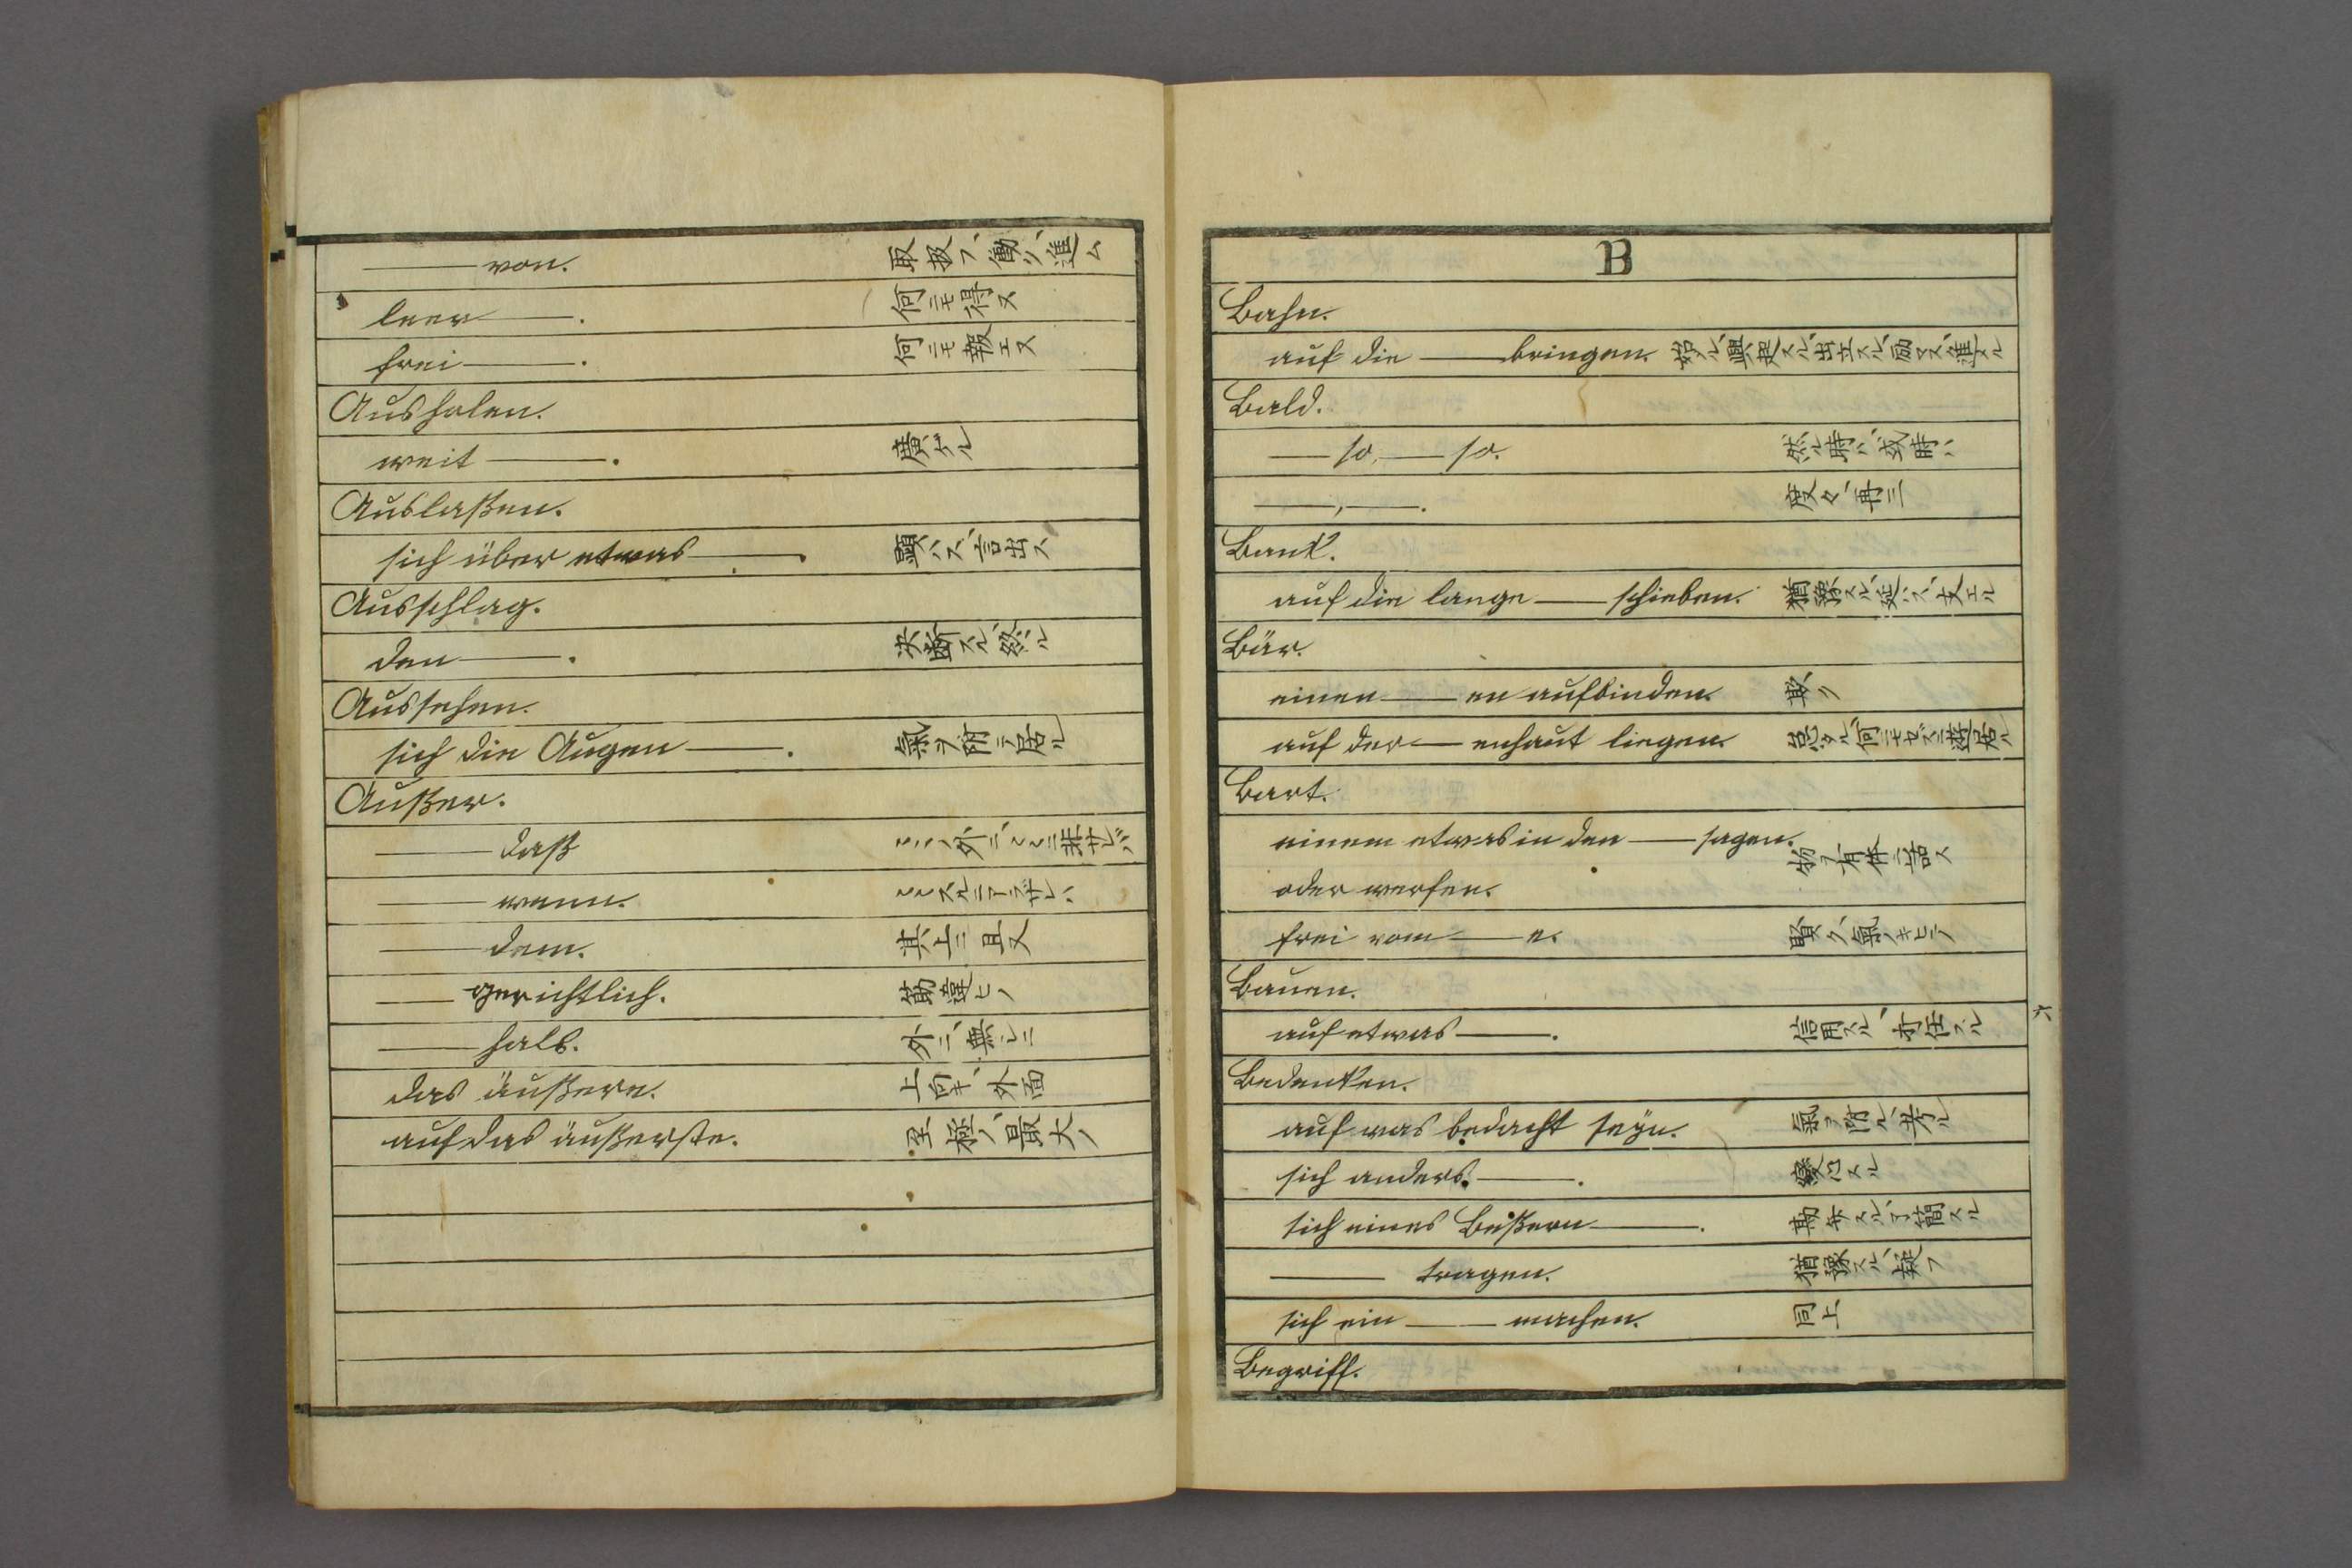 —— von. 取扱フ、働ク、進ム
leer ——. 何ニモ得ヌ
frei ——. 何ニモ報エヌ
Ausholen.
weit ——. 廣ゲル
Auslaßen.
sich über etwas ——. 顕ハス、言出ス
Ausschlag.
den ——. 决断スル、終ル
Aussehen.
sich die Augen ——. 氣ヲ附テ居ル
Außer.
—— daß
—— wann.
—— dem. 其上ニ、且又
—— gerichtlich. 筋違ヒノ
—— halb. 外ニ、無シニ
das äußere. 上向キ、外面
auf das äußerste. 至極ノ、最大ノ
B
Bahn.
auf die —— bringen. 始ル、興起スル、出立スル、励マス、進メル
Bald.
—— so, —— so. 然ル時ハ、或時ハ
——, ——. 度々、再三
Bank.
auf die lange —— schieben. 猶豫スル、延ハス、支エル
Bär.
einen —— en aufbinden. 欺ク
auf der —— enhaut liegen. 怠タル、何ニモセズニ遊居ル
Bart.
einem etwas in den —— sagen.
oder werfen. 物ヲ有体ニ話ス
frei vom —— e. 賢ク、氣ノキヒテ
Bauen.
auf etwas ——. 信用スル、亦任スル
Bedenken.
auf was bedacht seyn. 氣ヲ附ル、考ル
sich anders ——. 変心スル
sich eines Beßern ——. 勘弁スル、了簡スル
—— tragen. 猶豫スル、疑フ
sich ein —— machen. 同上
Begriff.
六